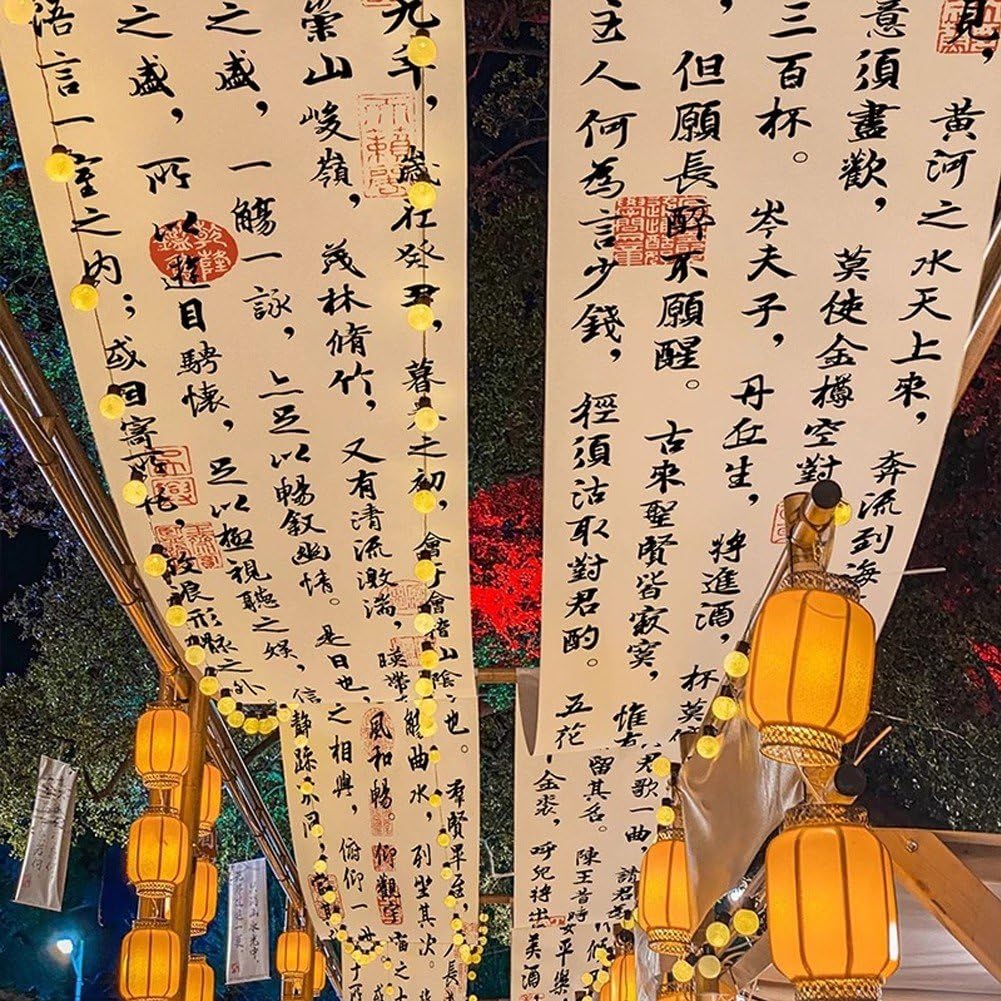 見，黃河之水天上來，奔流到海
意須盡歡，莫使金樽空對
三百杯。岑夫子，丹丘生，將進酒，杯莫
，但願長醉不願醒。古來聖賢皆寂寞，惟有
主人何為言少錢，徑須沽取對君酌。五花
君歌一曲，請君
留其名。陳王昔時宴平樂
金裘，呼兒將出美酒
九年，歲在癸丑，暮春之初，會于會稽山陰之
崇山峻嶺，茂林脩竹，又有清流激湍，映帶
之盛，一觴一詠，亦足以暢敘幽情。是日也，
之盛，所以遊目騁懷，足以極視聽之娛，信
語言一室之內；或因寄所託，放浪形骸之外
也。羣賢畢至，
觴曲水，列坐其次。
風和暢。仰觀宇
之相與，俯仰一世
靜躁不同，
乾隆